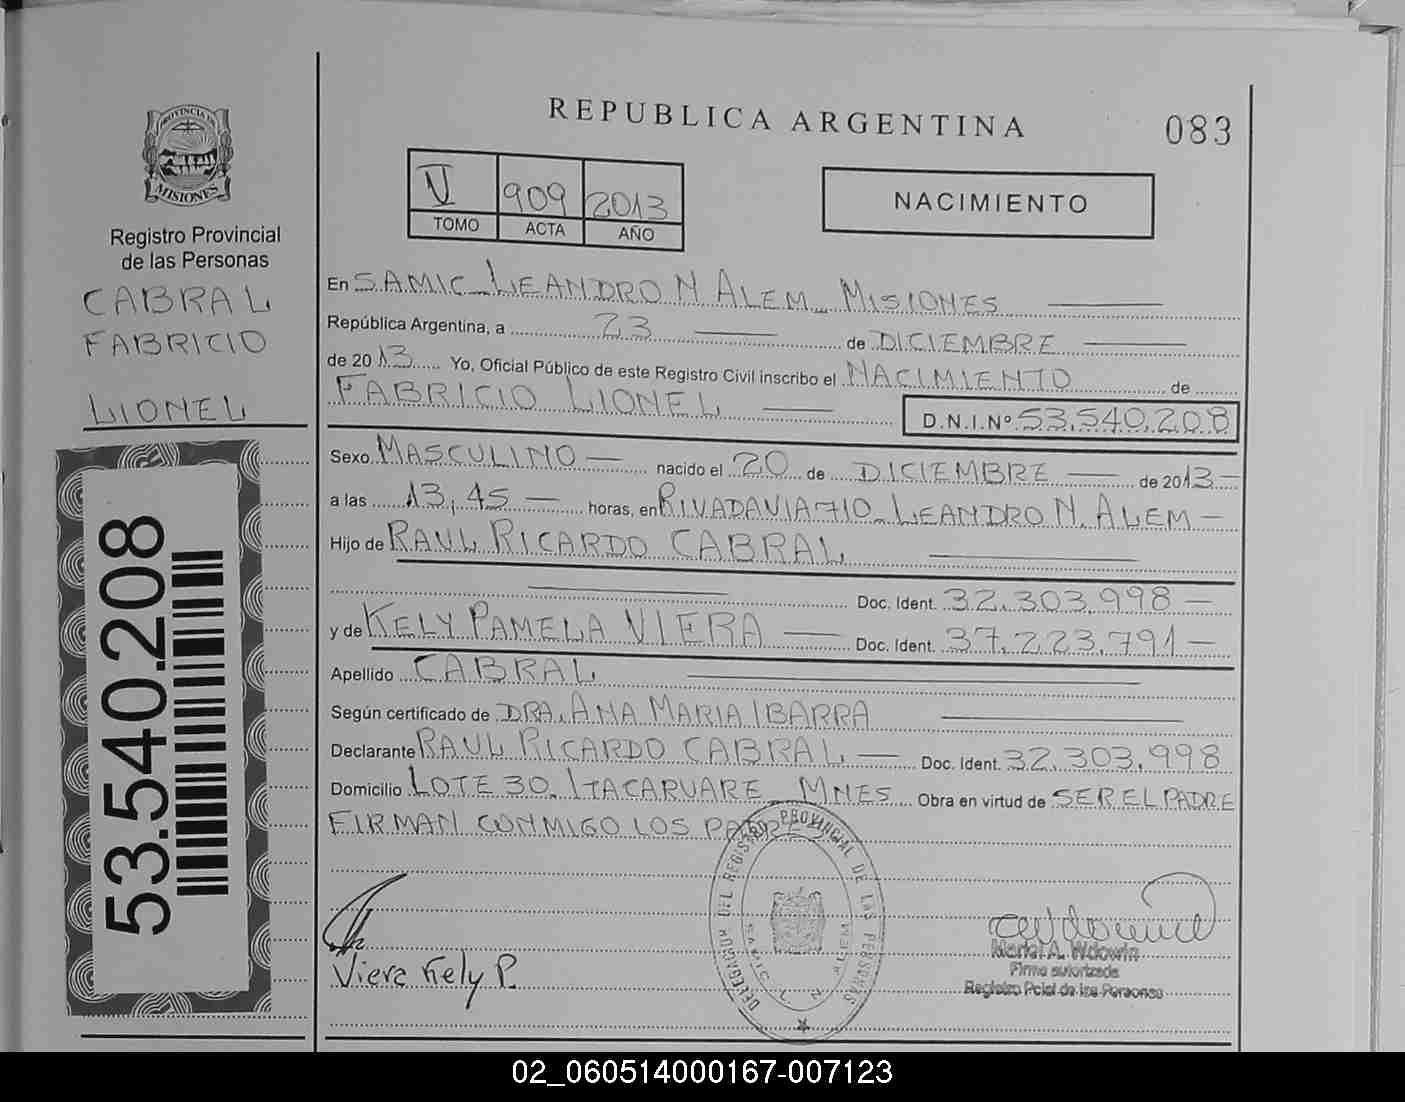 REPUBLICA ARGENTINA
083
PROVINCIA DE
MISIONES
Registro Provincial
de las Personas
CABRAL
FABRICIO
LIONEL
53.540.208
V 909 2013
TOMO ACTA AÑO
NACIMIENTO
En SAMIC_LEANDRO N ALEM_ MISIONES
República Argentina, a 23 de DICIEMBRE
de 2013 Yo, Oficial Público de este Registro Civil inscribo el NACIMIENTO de
FABRICIO LIONEL D.N.I.Nº 53.540.208
Sexo MASCULINO nacido el 20 de DICIEMBRE de 2013
a las 13,45 horas, en RIVADAVIA 710_ LEANDRO N. ALEM
Hijo de RAUL RICARDO CABRAL
Doc. Ident. 32.303.998
y de KELY PAMELA VIERA Doc. Ident. 37.223.791
Apellido CABRAL
Según certificado de DRA. ANA MARIA IBARRA
Declarante RAUL RICARDO CABRAL Doc. Ident. 32.303.998
Domicilio LOTE 30. ITACARUARE MNES Obra en virtud de SER EL PADRE
FIRMAN CONMIGO LOS PADRES
DELEGACION DEL REGISTRO PROVINCIAL DE LAS PERSONAS
SAMIC L. N. ALEM
Viera Kely P.
Mariel A. Wdowin
Firma autorizada
Registro Pcial de las Personas
02_060514000167-007123